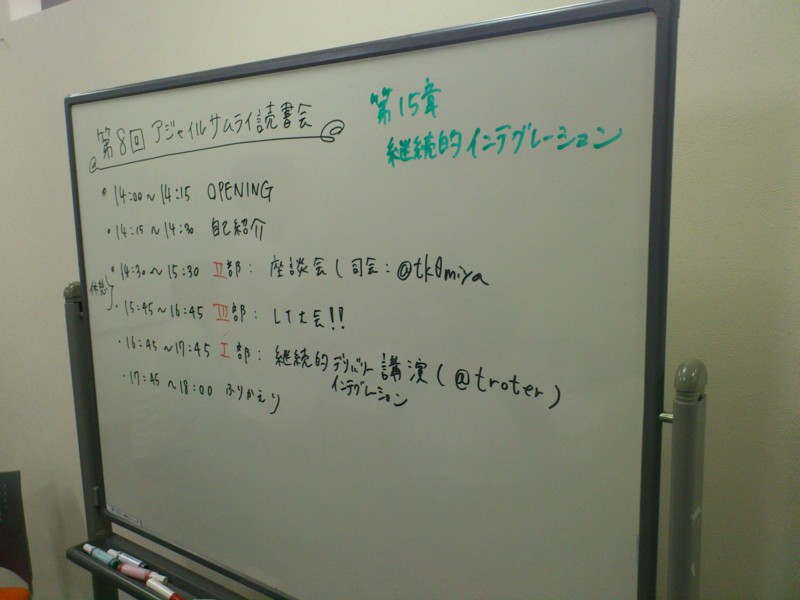 第8回 アジャイルサムライ読書会
第15章
継続的インテグレーション
・14:00〜14:15 OPENING
・14:15〜14:30 自己紹介
・14:30〜15:30 II部: 座談会(司会:@tk0miya
休憩
・15:45〜16:45 III部: LT大会!!
・16:45〜17:45 I部: 継続的デリバリー講演(@troter)
インテグレーション
・17:45〜18:00 ふりかえり